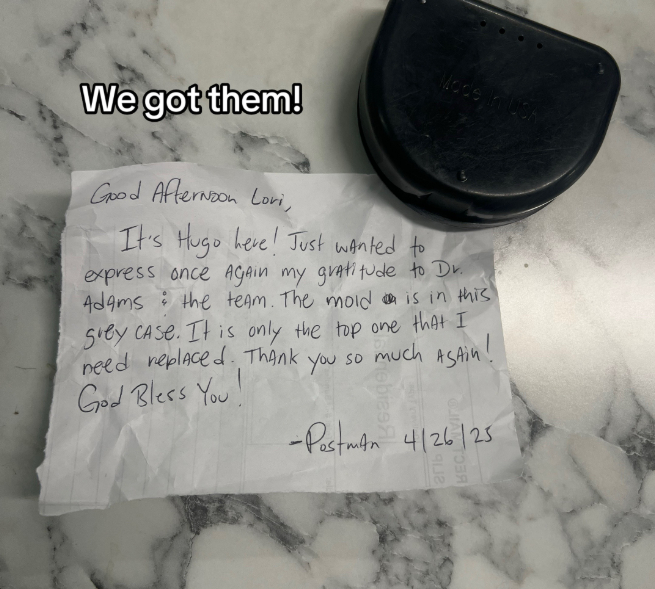 We got them!
Made in USA
Good Afternoon Lori,
It's Hugo here! Just wanted to
express once Again my gratitude to Dr.
Adams & the team. The mold is in this
grey case. It is only the top one that I
need replaced. Thank you so much Again!
God Bless You!
-Postman 4/26/25